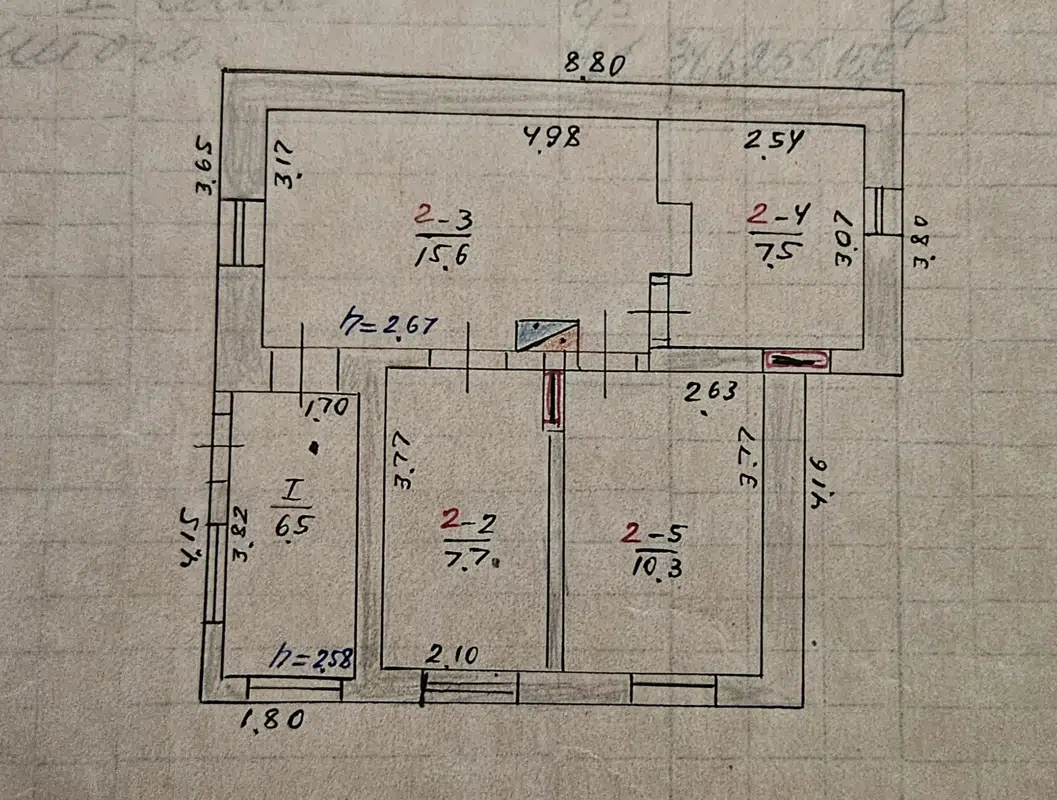 итого
8.80
4.98
2.54
3.65
3.17
2-3
15.6
2-4
7.5
3.07
3.80
h=2.67
1.70
2.63
3.77
3.77
4.16
I
6.5
4.15
3.82
2-2
7.7
2-5
10.3
h=2.58
2.10
1.80